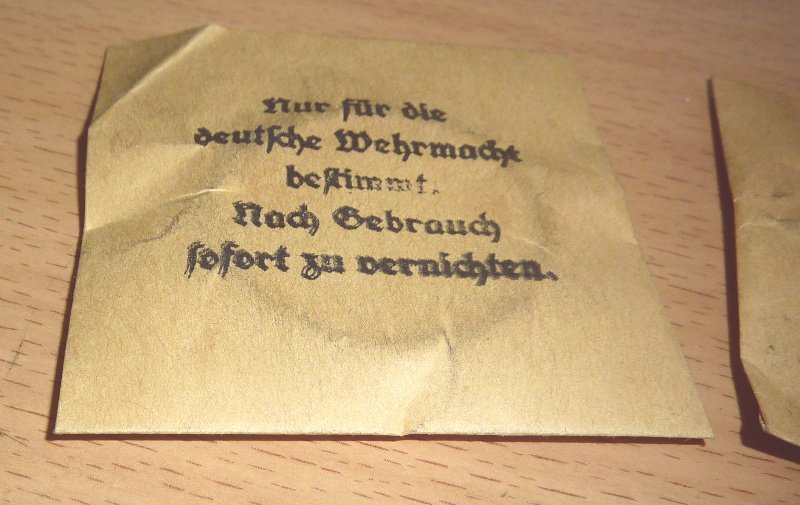 Nur für die
deutsche Wehrmacht
bestimmt.
Nach Gebrauch
sofort zu vernichten.